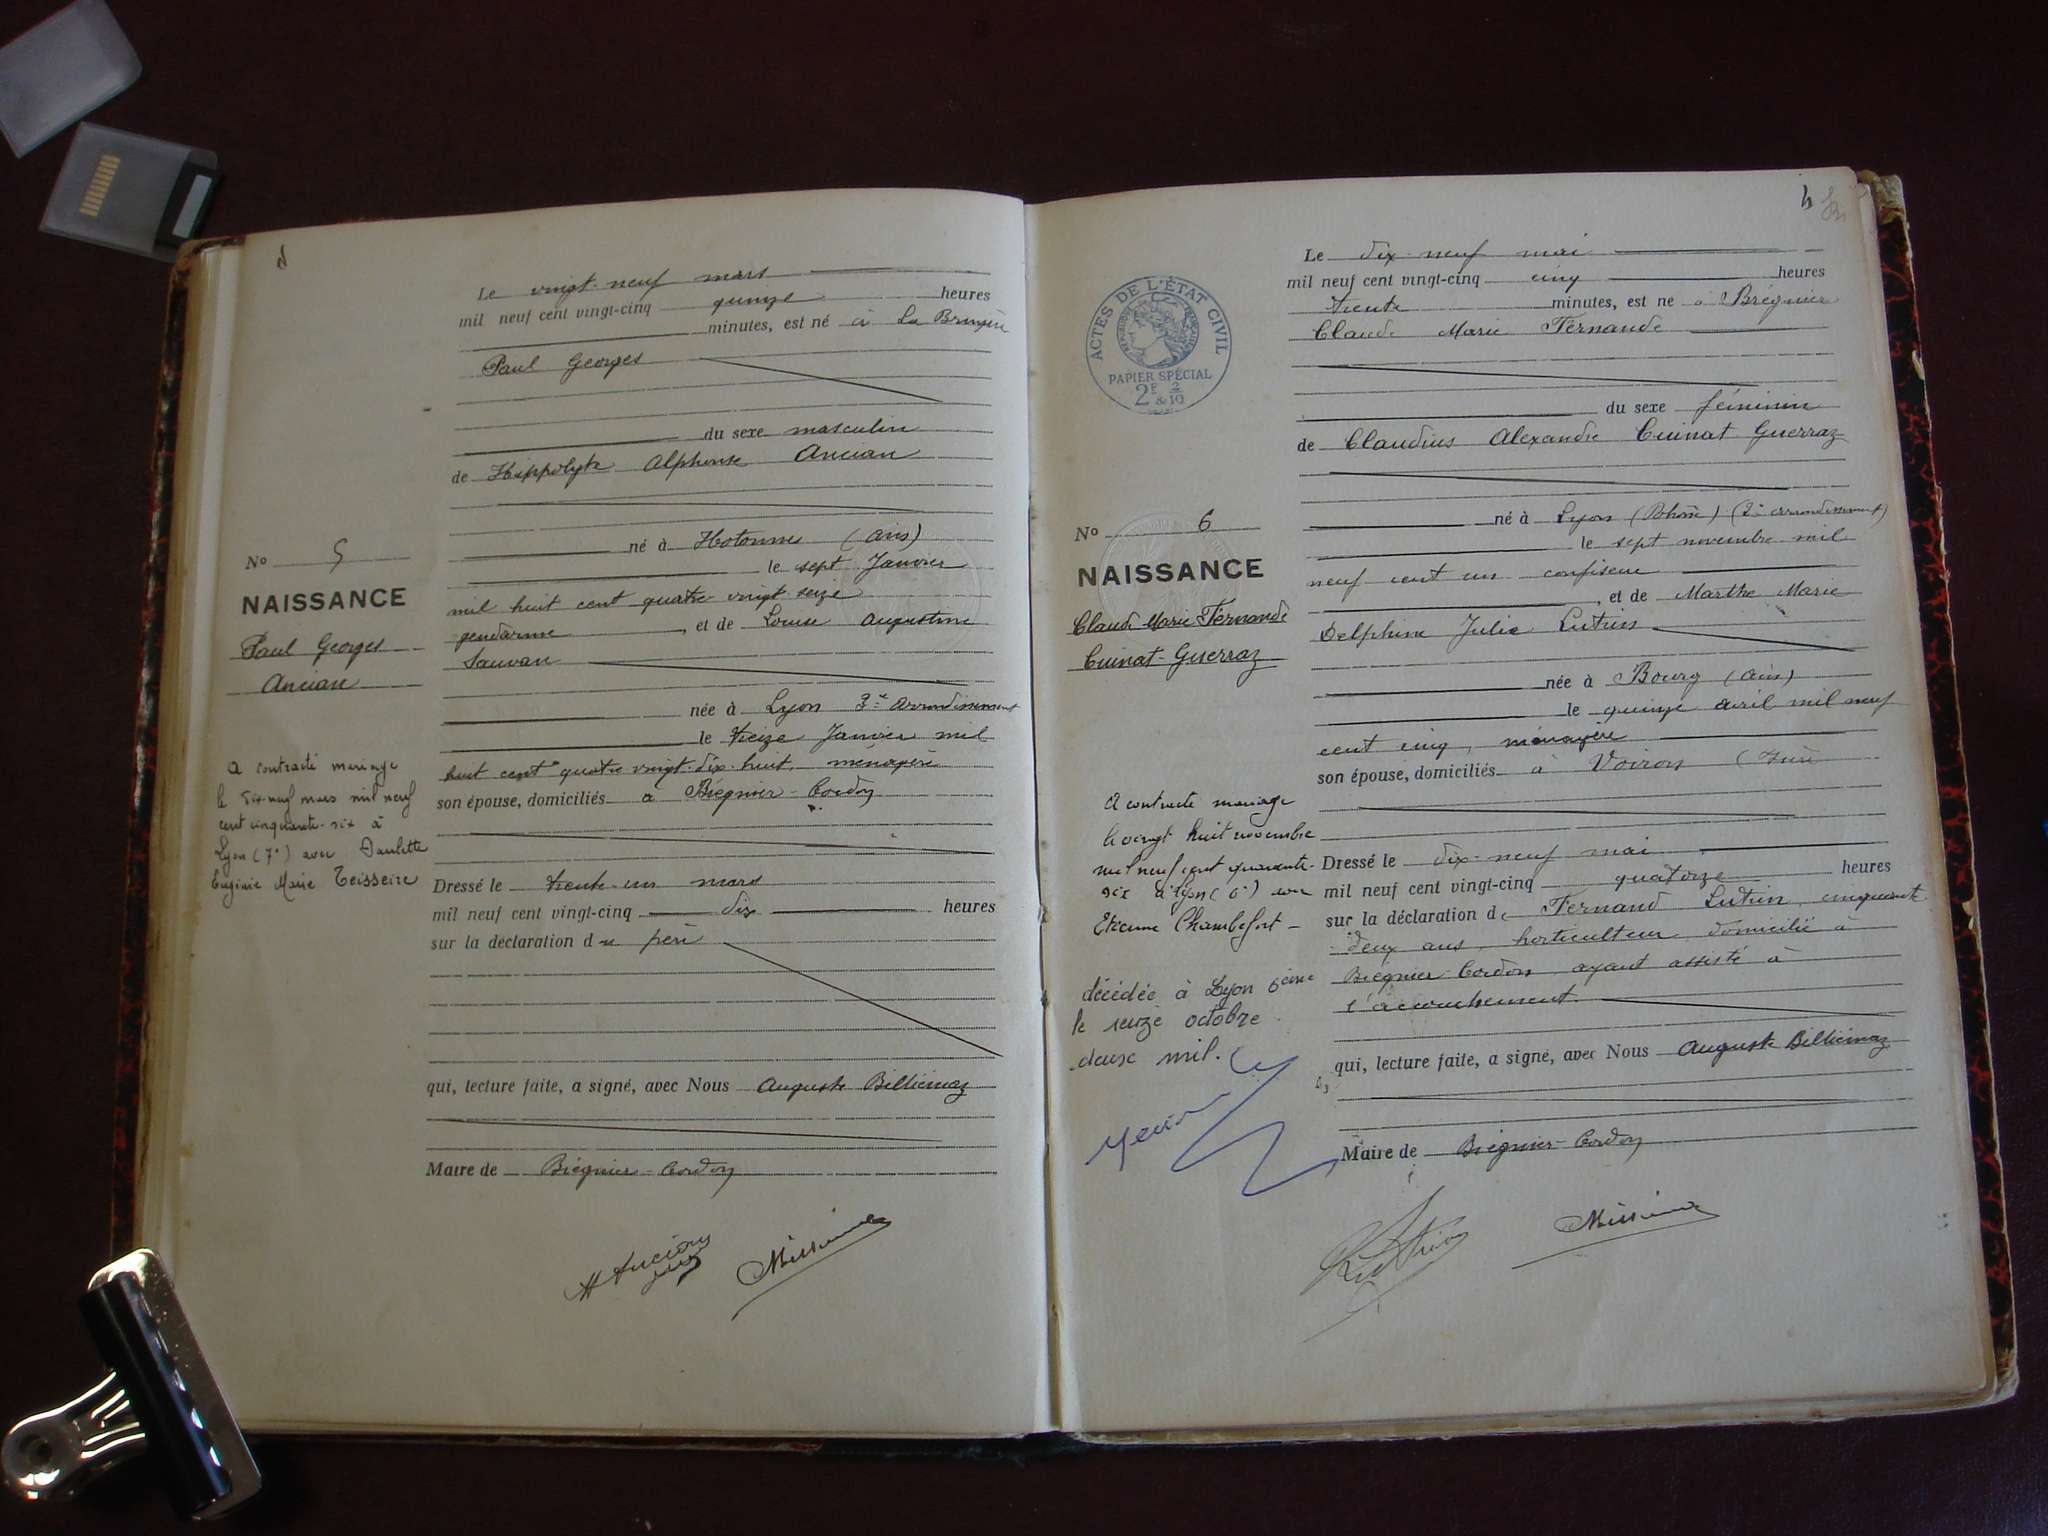 Le vingt-neuf mars
mil neuf cent vingt-cinq quinze heures
minutes, est né à La Bruyère
Paul Georges
du sexe masculin
de Hippolyte Alphonse Ancian
né à Hotonnes (Ain)
le sept Janvier
mil huit cent quatre-vingt-seize
gendarme, et de Louise Augustine
Sauvan
née à Lyon 3e arrondissement
le treize Janvier mil
huit cent quatre vingt-dix-huit, ménagère
son épouse, domiciliés à Brégnier-Cordon
Dressé le trente-un mars
mil neuf cent vingt-cinq dix heures
sur la déclaration du père
qui, lecture faite, a signé, avec Nous Auguste Billiémaz
Maire de Brégnier-Cordon
H Ancian
No 5
NAISSANCE
Paul Georges
Ancian
A contracté mariage
le dix-neuf mars mil neuf
cent cinquante-six à
Lyon (7e) avec Paulette
Eugénie Marie Teisseire
4
Le dix-neuf mai
mil neuf cent vingt-cinq cinq heures
trente minutes, est né à Brégnier
Claude Marie Fernande
du sexe féminin
de Claudius Alexandre Cuinat Guerraz
né à Lyon (Rhône) (2e arrondissement)
le sept novembre mil
neuf cent un confiseur
, et de Marthe Marie
Delphine Julie Lutrin
née à Bourg (Ain)
le quinze avril mil neuf
cent cinq, ménagère
son épouse, domiciliés à Voiron (Isère
Dressé le dix-neuf mai
mil neuf cent vingt-cinq quatorze heures
sur la déclaration de Fernand Lutrin, cinquante
deux ans, horticulteur, domicilié à
Brégnier-Cordon, ayant assisté à
l'accouchement
qui, lecture faite, a signé, avec Nous Auguste Billiémaz
Maire de Brégnier-Cordon
ACTES DE L'ÉTAT CIVIL
RÉPUBLIQUE FRANÇAISE
PAPIER SPÉCIAL
2F & 2/10
No 6
NAISSANCE
Claude Marie Fernande
Cuinat-Guerraz
A contracté mariage
le vingt huit novembre
mil neuf cent quarante-
six à Lyon (6e) avec
Etienne Chambefort
décédée à Lyon 6ème
le seize octobre
deux mil.